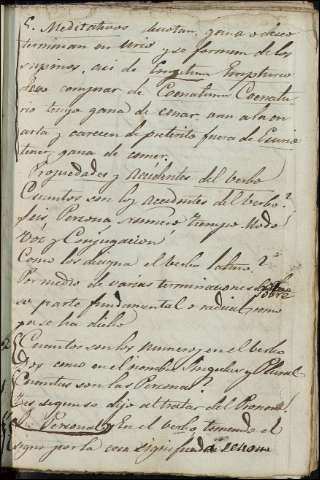 5. Meditativos denotan, gana o deseo
terminan en urio, y se forman de los
supinos, asi de Emptum Empturio
deseo comprar de Coenatum Coenatu-
rio tengo gana de cenar, van a la
4ª y carecen de preterito fuera de Esurio
tener gana de comer.
Propiedades y accidentes del verbo
Cuantos son los accidentes del verbo?
Seis Persona numero tiempo Modo
Voz y Conjugacion
Como los designa el verbo latino?
Por medio de varias terminaciones sobre
su parte fundamental o radical, como
ya se ha dicho
Cuantos son los numeros en el verbo
Dos como en el nombre Singular y Plural
Cuantas son las Personas?
Tres segun se dijo al tratar del Pronombre
Personal. En el verbo tomando el
signo por la cosa significada se